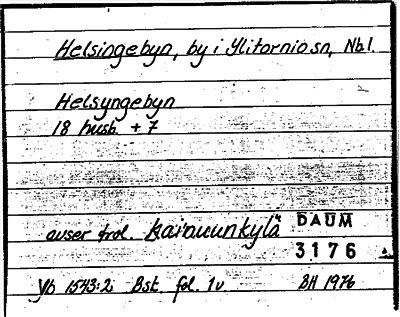 Helsingebyn, by i Ylitornio sn, Nbl.
Helsyngebyn
18 husb. + 7
avser trol. Kainuunkylä
DAUM
3176
Yb 1543:2i Bst. fol. 1v BH 1976